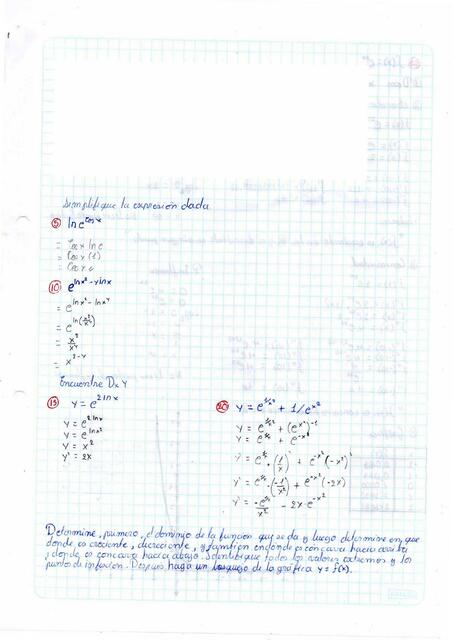 Simplifique la expresión dada
5) ln e^cos x
= cos x ln e
= cos x (1)
= cos x
10) e^(ln x² - y ln x)
= e^(ln x² - ln x^y)
= e^(ln(x²/x^y))
= x²/x^y
= x^(2-y)
Encuentre Dx Y
15) y = e^(2 ln x)
y = e^(2 ln x)
y = e^(ln x²)
y = x²
y' = 2x
20) y = e^(1/x²) + 1/e^(x²)
+ (e^(x²))^-1
+ e^(-x²)
+ e^(-x²) (-x²)'
+ e^(-x²) (-2x)
- 2x e^(-x²)
Determine, primero, el dominio de la función que se da y luego determine en que
donde es creciente, decreciente, y también en donde es concava hacia arriba
y donde es concava hacia abajo. Identifique todos los valores extremos y los
puntos de inflexión. Después haga un bosquejo de la gráfica y = f(x).